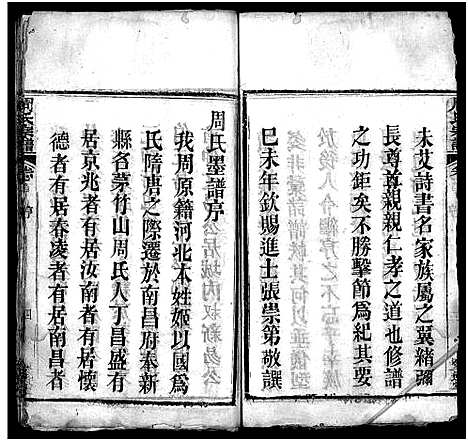 未艾詩書名家族屬之翼緒彌
長尊尊親親仁孝之道也修譜
之功鉅矣不勝擊節爲紀其要
巳未年欽賜進士張崇第敬譔
周氏墨譜序
我周原籍河北本姓姬以國爲
氏隋唐之際遷於南昌府奉新
縣名茅竹山周氏人丁昌盛有
居京兆者有居汝南者有居懷
德者有居舂凌者有居南昌者
周氏宗譜